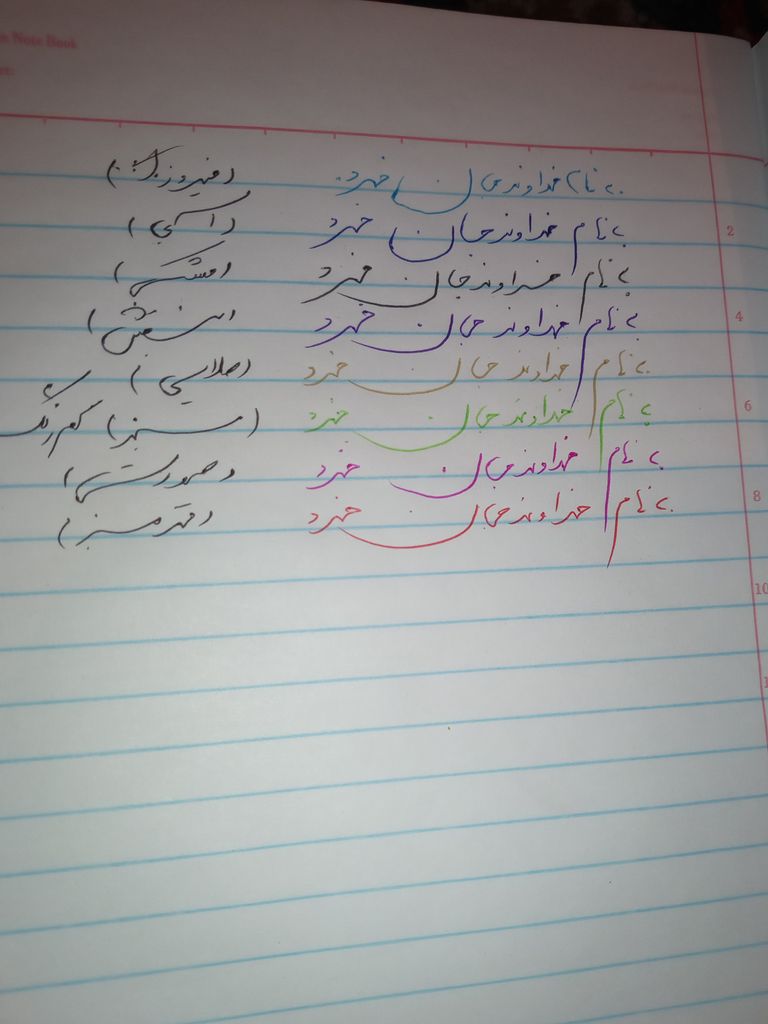 n Note Book
به نام خداوند جان خرد. (فیروزه‌ای)
به نام خداوند جان خرد (آبی)
به نام خداوند جان خرد (مشکی)
به نام خداوند جان خرد (بنفش)
به نام خداوند جان خرد (طلایی)
به نام خداوند جان خرد (سبز) کم رنگ
به نام خداوند جان خرد (صورتی)
به نام خداوند جان خرد (قرمز)
2
4
6
8
10